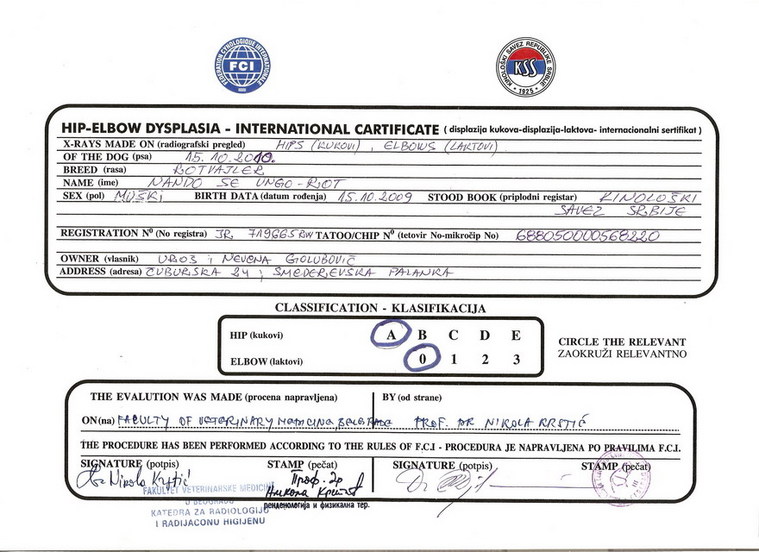 FEDERATION CYNOLOGIQUE INTERNATIONALE
FCI
KINOLOŠKI SAVEZ REPUBLIKE SRBIJE
KSS
1925
HIP-ELBOW DYSPLASIA - INTERNATIONAL CARTIFICATE ( displazija kukova-displazija-laktova- internacionalni sertifikat )
X-RAYS MADE ON (radiografski pregled) HIPS (KUKOVI) , ELBOWS (LAKTOVI)
OF THE DOG (psa) 15.10.2010.
BREED (rasa) ROTVAJLER
NAME (ime) NANDO SE UNGO-RIOT
SEX (pol) MUŠKI BIRTH DATA (datum rođenja) 15.10.2009 STOOD BOOK (priplodni registar) KINOLOŠKI
SAVEZ SRBIJE
REGISTRATION Nº (No registra) JR 719665RW TATOO/CHIP Nº (tetovir No-mikročip No) 688050000568220
OWNER (vlasnik) UROŠ i NEVENA GOLUBOVIĆ
ADDRESS (adresa) ČUBURSKA 24 ; SMEDEREVSKA PALANKA
CLASSIFICATION - KLASIFIKACIJA
HIP (kukovi) A B C D E
ELBOW (laktovi) 0 1 2 3
CIRCLE THE RELEVANT
ZAOKRUŽI RELEVANTNO
THE EVALUTION WAS MADE (procena napravljena) BY (od strane)
ON(na) FACULTY OF VETERINARY MEDICINA, BELGRADE PROF. DR NIKOLA KRSTIĆ
THE PROCEDURE HAS BEEN PERFORMED ACCORDING TO THE RULES OF F.C.I - PROCEDURA JE NAPRAVLJENA PO PRAVILIMA F.C.I.
SIGNATURE (potpis) STAMP (pečat) SIGNATURE (potpis) STAMP (pečat)
Nikola Krstić
Проф. др
Никола Крстић
FAKULTET VETERINARSKE MEDICINE
U BEOGRADU
KATEDRA ZA RADIOLOGIJU
I RADIJACONU HIGIJENU
Dr